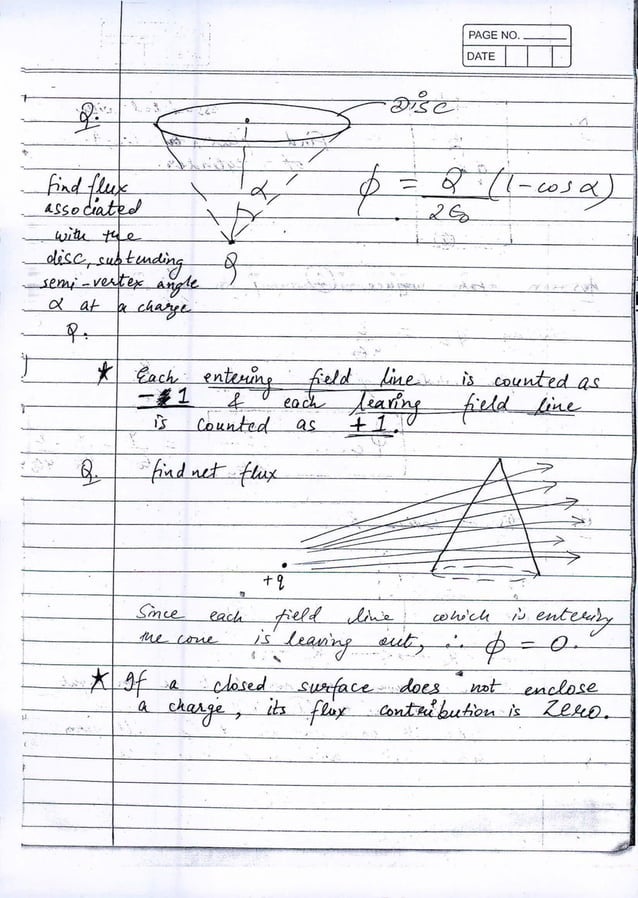 PAGE NO.
DATE
Q.
DISC
find flux
associated
with the
disc, subtending
semi-vertex angle
α at a charge
Q.
α
Q
ϕ = Q/2ε₀ (1-cosα)
* Each entering field line is counted as
-1 & each leaving field line
is counted as +1.
Q. find net flux
+q
Since each field line which is entering
the cone is leaving out, ∴ ϕ = 0.
* If a closed surface does not enclose
a charge, its flux contribution is zero.